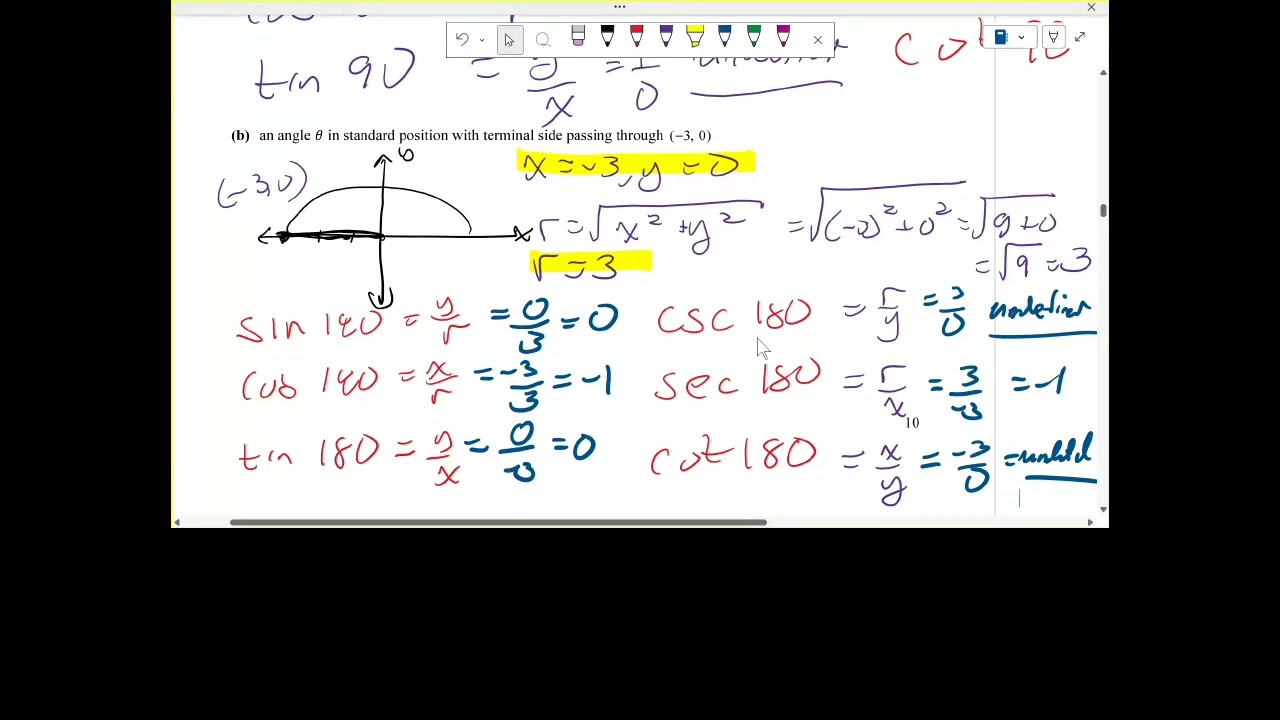 tin 90 = y/x = 1/0
(b) an angle θ in standard position with terminal side passing through (−3, 0)
(-3,0) x = -3, y = 0
r = √x² + y² = √(-3)² + 0² = √9+0
x
r = 3 = √9 = 3
sin 180 = y/r = 0/3 = 0 csc 180 = r/y = 3/0 undefined
cos 180 = x/r = -3/3 = -1 sec 180 = r/x = 3/-3 = -1
10
tin 180 = y/x = 0/-3 = 0 cot 180 = x/y = -3/0 =